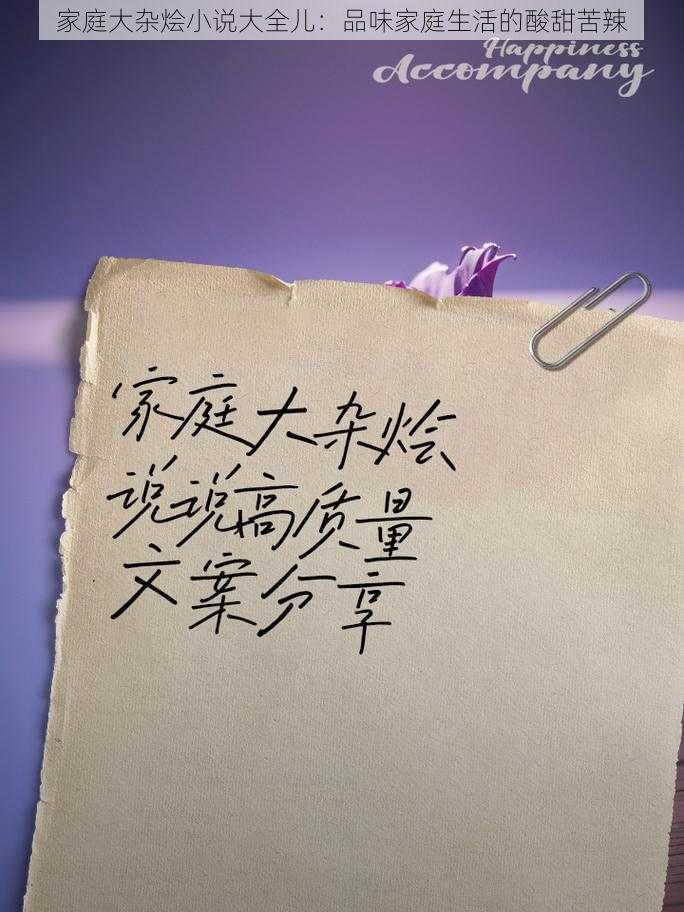 家庭大杂烩小说大全儿：品味家庭生活的酸甜苦辣
Happiness
Accompany
家庭大杂烩
说说搞质量
文案分享